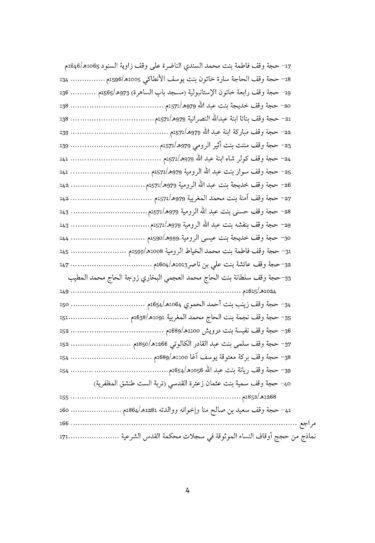 17- حجة وقف فاطمة بنت محمد السندي الناضرة على وقف زاوية السنود 1065هـ/1646م
18- حجة وقف الحاجة سارة خاتون بنت يوسف الأنطاكي 1005هـ/1596م ............... 134
19- حجة وقف رابعة خاتون الإستانبولية (مسجد باب الساهرة) 973هـ/1565م ........... 136
20- حجة وقف خديجة بنت عبد الله 979هـ/1571م ........................................ 138
21- حجة وقف بتانا ابنة عبدالله النصرانية 979هـ/1571م .................................... 138
22- حجة وقف مباركة ابنة عبد الله 979هـ/1571م .......................................... 139
23- حجة وقف مثنت بنت أثير الرومي 979هـ/1571م ...................................... 139
24- حجة وقف كولر شاه ابنة عبد الله 979هـ/1571م ....................................... 141
25- حجة وقف سوار بنت عبد الله الرومية 979هـ/1571م .................................. 141
26- حجة وقف خديجة بنت عبد الله الرومية 979هـ/1571م ................................ 142
27- حجة وقف آمنة بنت محمد المغربية 979هـ/1571م ................................... 142
28- حجة وقف حسنى بنت عبد الله الرومية 979هـ/1571م ................................. 143
29- حجة وقف بنفشه بنت عبد الله الرومية 979هـ/1571م .................................. 143
30- حجة وقف خديجة بنت عيسى الرومية 999هـ/1590م ................................. 144
31- حجة وقف فاطمة بنت محمد الخياط الرومية 1008هـ/1599م ........................ 145
32- حجة وقف عائشة بنت علي بن ناصر 1013هـ/1604م ................................... 147
33- حجة وقف سلطانة بنت الحاج محمد العجمي البخاري زوجة الحاج محمد المطيب
1024هـ/1615م ........................................................................ 149
34- حجة وقف زينب بنت أحمد الحموي 1064هـ/1654م ................................ 150
35- حجة وقف نجمة بنت الحاج محمد المغربية 1091هـ/1638م .......................... 151
36- حجة وقف نفيسة بنت درويش 1100هـ/1689م ........................................ 152
37- حجة وقف سلمى بنت عبد القادر الكالوتي 1266هـ/1850م .......................... 152
38- حجة وقف بركة معتوقة يوسف آغا 1100هـ/1689م ................................... 154
39- حجة وقف ريانة بنت عبد الله 1056هـ/1654م ........................................... 154
40- حجة وقف سمية بنت عثمان زعترة القدسي (تربة الست طنشق المظفرية)
1268هـ/1852م ......................................................................... 155
41- حجة وقف سعيد بن صالح منا وإخوانه ووالدته 1281هـ/1864م ....................... 160
مراجع ........................................................................................ 166
نماذج من حجج أوقاف النساء الموثوقة في سجلات محكمة القدس الشرعية ..................... 171
4